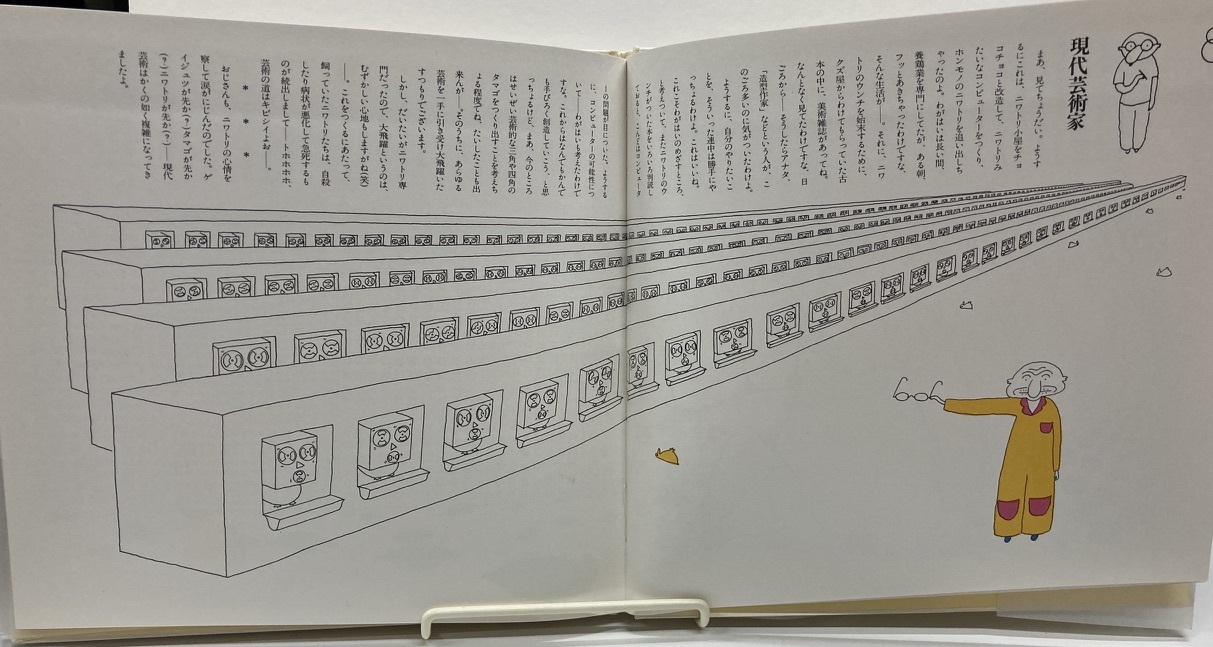 現代芸術家
まあ、見てちょうだい。ようす
るにこれは、ニワトリ小屋をチョ
コチョコと改造して、ニワトリみ
たいなコンピューターをつくり、
ホンモノのニワトリを追い出しち
やったのよ。わがはいは長い間、
養鶏業を専門にしてたが、ある朝、
フッとあきちゃったわけですな、
そんな生活が——。それに、ニワ
トリのウンチを始末するために、
クズ屋からわけてもらっていた古
本の中に、美術雑誌があってね。
なんとなく見てたわけですな、日
ごろから——そうしたらアナタ、
「造型作家」などという人が、こ
のごろ多いのに気がついたわけよ。
ようするに、自分のやりたいこ
とを、そういった連中は勝手にや
っちょるわけよ。これはいいね。
これこそわがはいのめざすところ、
と考えついて、またニワトリのウ
ンチがついた本をいろいろ判読し
てみると、こんどはコンピュータ
ーの問題が目についた。ようする
に、コンピューターの可能性につ
いて——わがはいも考えたわけで
すな。これからはなんでもかんで
も手びろく創造していこう、と思
っちょるけど、まあ、今のところ
はせいぜい芸術的な三角や四角の
タマゴをつくり出すことを考えち
よる程度でね、たいしたことも出
来んが——そのうちに、あらゆる
芸術を一手に引き受け大飛躍いた
すつもりでございます。
しかし、だいたいがニワトリ専
門だったので、大飛躍というのは、
むずかしい心地もしますがね(笑)
——。これをつくるにあたって、
飼っていたニワトリたちは、自殺
したり病状が悪化して急死するも
のが続出しまして——トホホホホ、
芸術の道はキビシイよお——。
* * *
おじさんも、ニワトリの心情を
察して涙がにじんだのでした。ゲ
イジュツが先か(?)タマゴが先か
(?)ニワトリが先か(?)——現代
芸術はかくの如く複雑になってき
ましたよ。